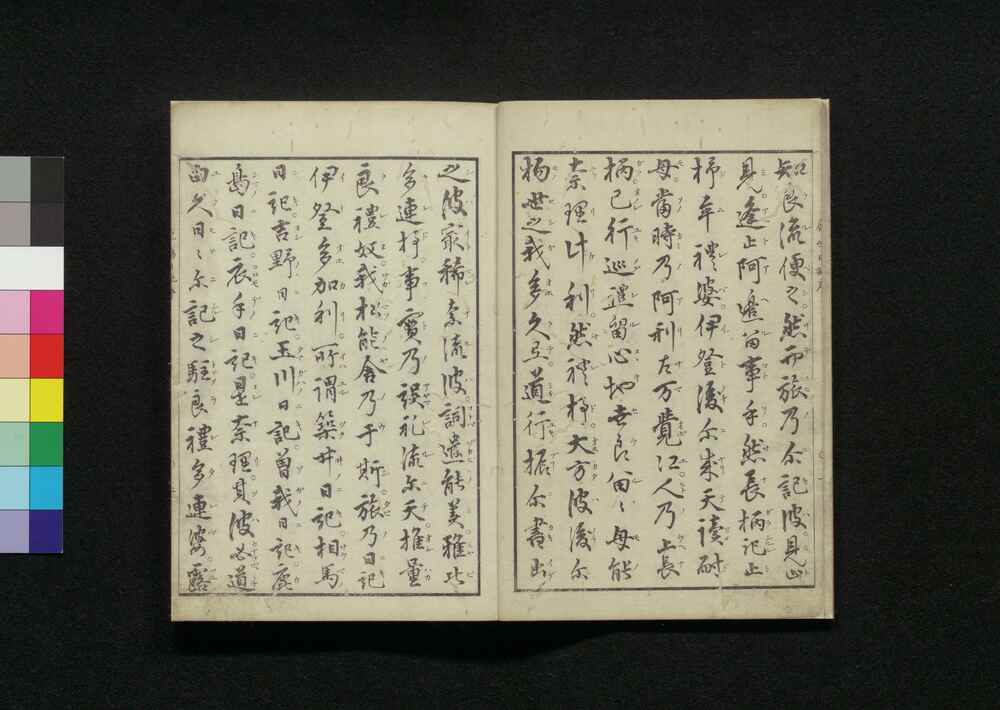 知良流便之然而旅乃尓記波見止
見逢上阿 留事乎然長柄記上
抔牟禮婆伊登後尓来天読耐
母當時乃阿利左万覚江人乃上長
柄已行巡遣留心地世良留々母能
奈理計利然礼抔大方波後尓
物世之我多久三道行振尓書出
之波最稀奈流波詞遣能美雅比
多連抔事實乃誤礼流尓天推量
良禮奴我松能舎乃于斯旅乃日記
伊登多加利所謂築井日記相馬
日記吉野日記玉川日記曽我日記鹿
島日記衣手日記是奈理其波必道
由久日々尓記之駐良禮多連婆露